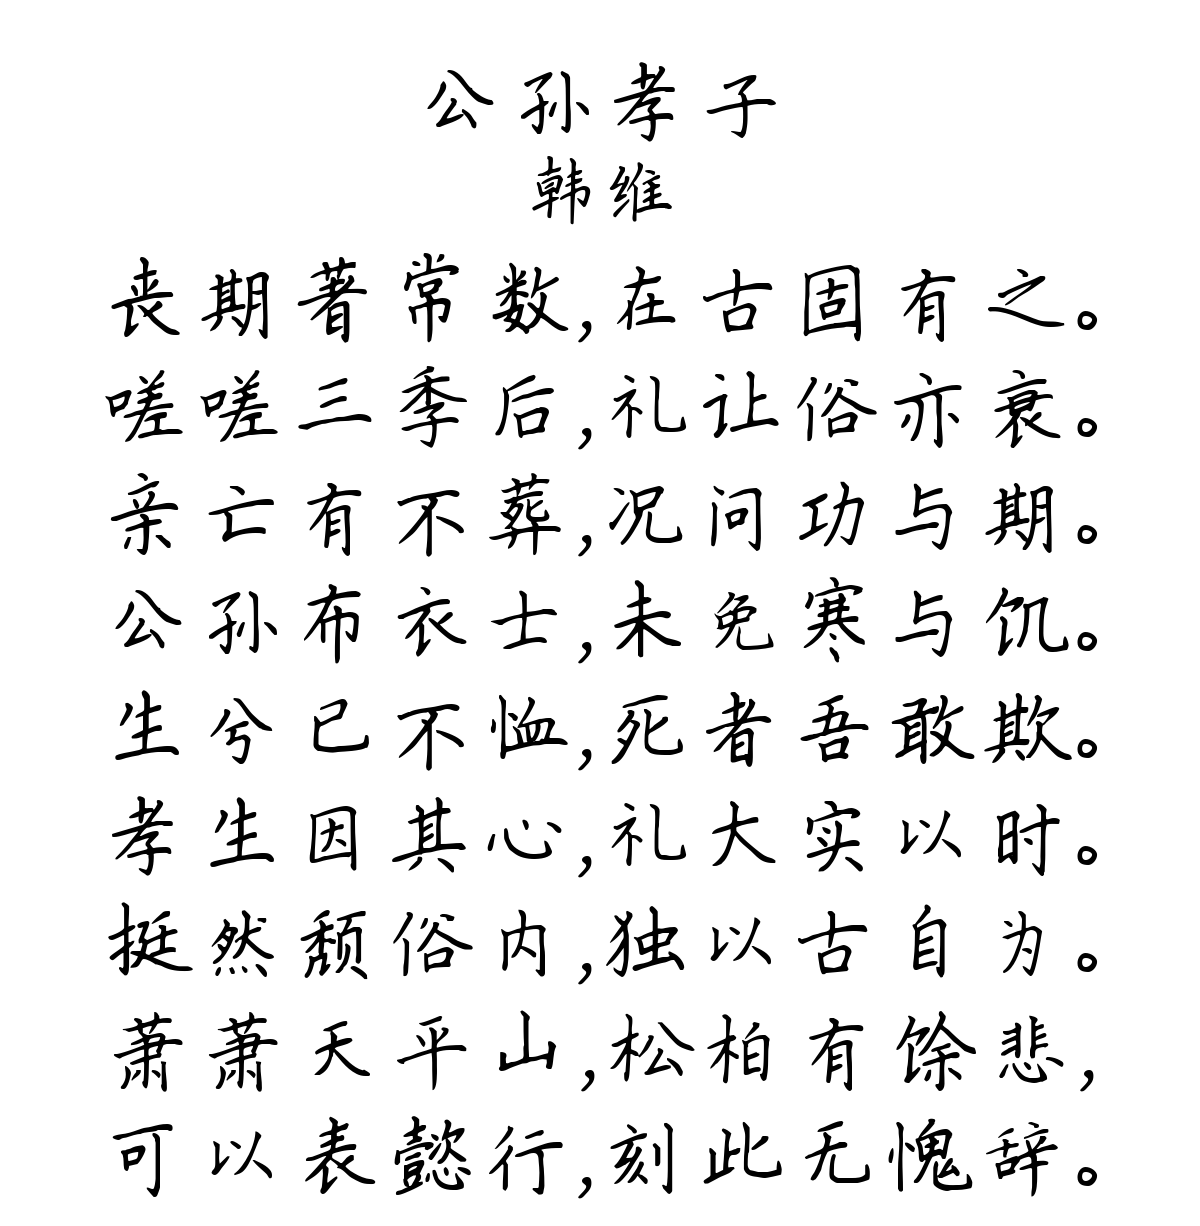 公孙孝子
韩维
丧期著常数,在古固有之。
嗟嗟三季后,礼让俗亦衰。
亲亡有不葬,况问功与期。
公孙布衣士,未免寒与饥。
生兮已不恤,死者吾敢欺。
孝生因其心,礼大实以时。
挺然颓俗内,独以古自为。
萧萧天平山,松柏有馀悲,
可以表懿行,刻此无愧辞。